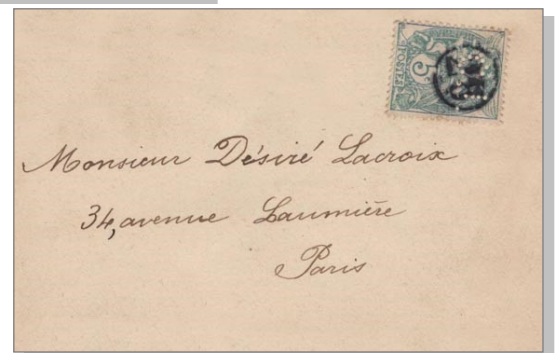 POSTES
5
Monsieur Désiré Lacroix
34, avenue Laumière
Paris